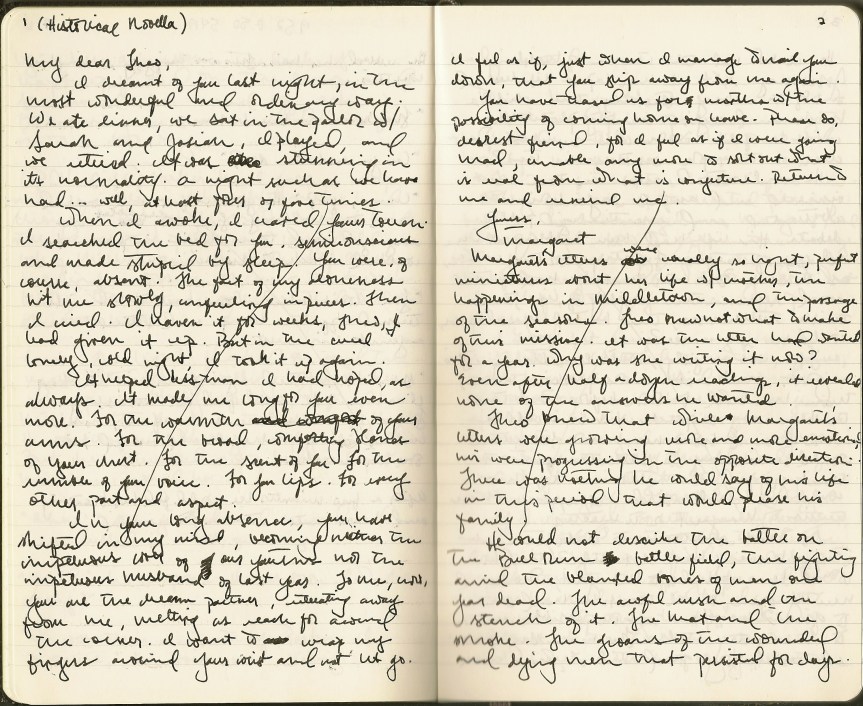 1 (Historical Novella)
My dear Theo,
I dreamt of you last night, in the
most wonderful and ordinary way.
We ate dinner, we sat in the parlor w/
Sarah and Josiah, I played, and
we retired. It was stunning in
its normality. A night such as we have
had... well, at most four or five times.
When I awoke, I craved your touch.
I searched the bed for you, semiconscious
and made stupid by sleep. You were, of
course, absent. The fact of my aloneness
hit me slowly, in pieces. Then
I cried. I haven't for weeks, Theo, I
had given it up. But in the cruel
lonely, cold night I took it up again.
It helped less than I had hoped, as
always. It made me long for you even
more. For the warmth of your
arms. For the broad, comforting planes
of your chest. For the scent of you. For the
timbre of your voice. For your lips. For every
other part and aspect.
In your long absence, you have
shifted in my mind, becoming neither the
impetuous of our youths nor the
impetuous husband of last year. To me, now,
you are the dream partner, away
from me, melting as I reach for around
the corner. I want to wrap my
fingers around your wrist and not let go.
2
I feel as if, just when I manage to nail you
down, that you slip away from me again.
You have teased us for months w/ the
possibility of coming home on leave. Please do,
dearest friend, for I feel as if I were going
mad, unable any more to sort out what
is real from what is conjecture. Return to
me and remind me.
Yours,
Margaret
Margaret's letters were usually so light, perfect
miniatures about her life w/ mother, the
happenings in Middletown, and the passage
of the seasons. Theo knew not what to make
of this missive. It was the letter he'd wanted
for a year. Why was she writing it now?
Even after half a dozen readings, it revealed
none of the answers he wanted.
Theo knew that while Margaret's
letters were growing more and more emotional,
his were progressing in the opposite direction.
There was nothing he could say of his life
in this period that would please his
family.
He could not describe the battle on
the Bull Run battle field, the fighting
amid the blanched bones of men one
year dead. The awful rush and the
stench of it. The heat and the
smoke. The groans of the wounded
and dying men that persisted for days.